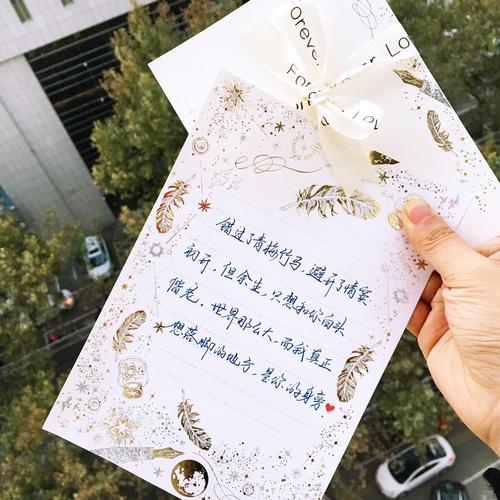 Forever Love
Forever Lo
错过了青梅竹马，避开了情窦
初开，但余生，只想和你白头
偕老，世界那么大，而我真正
想落脚的地方，是你的身旁